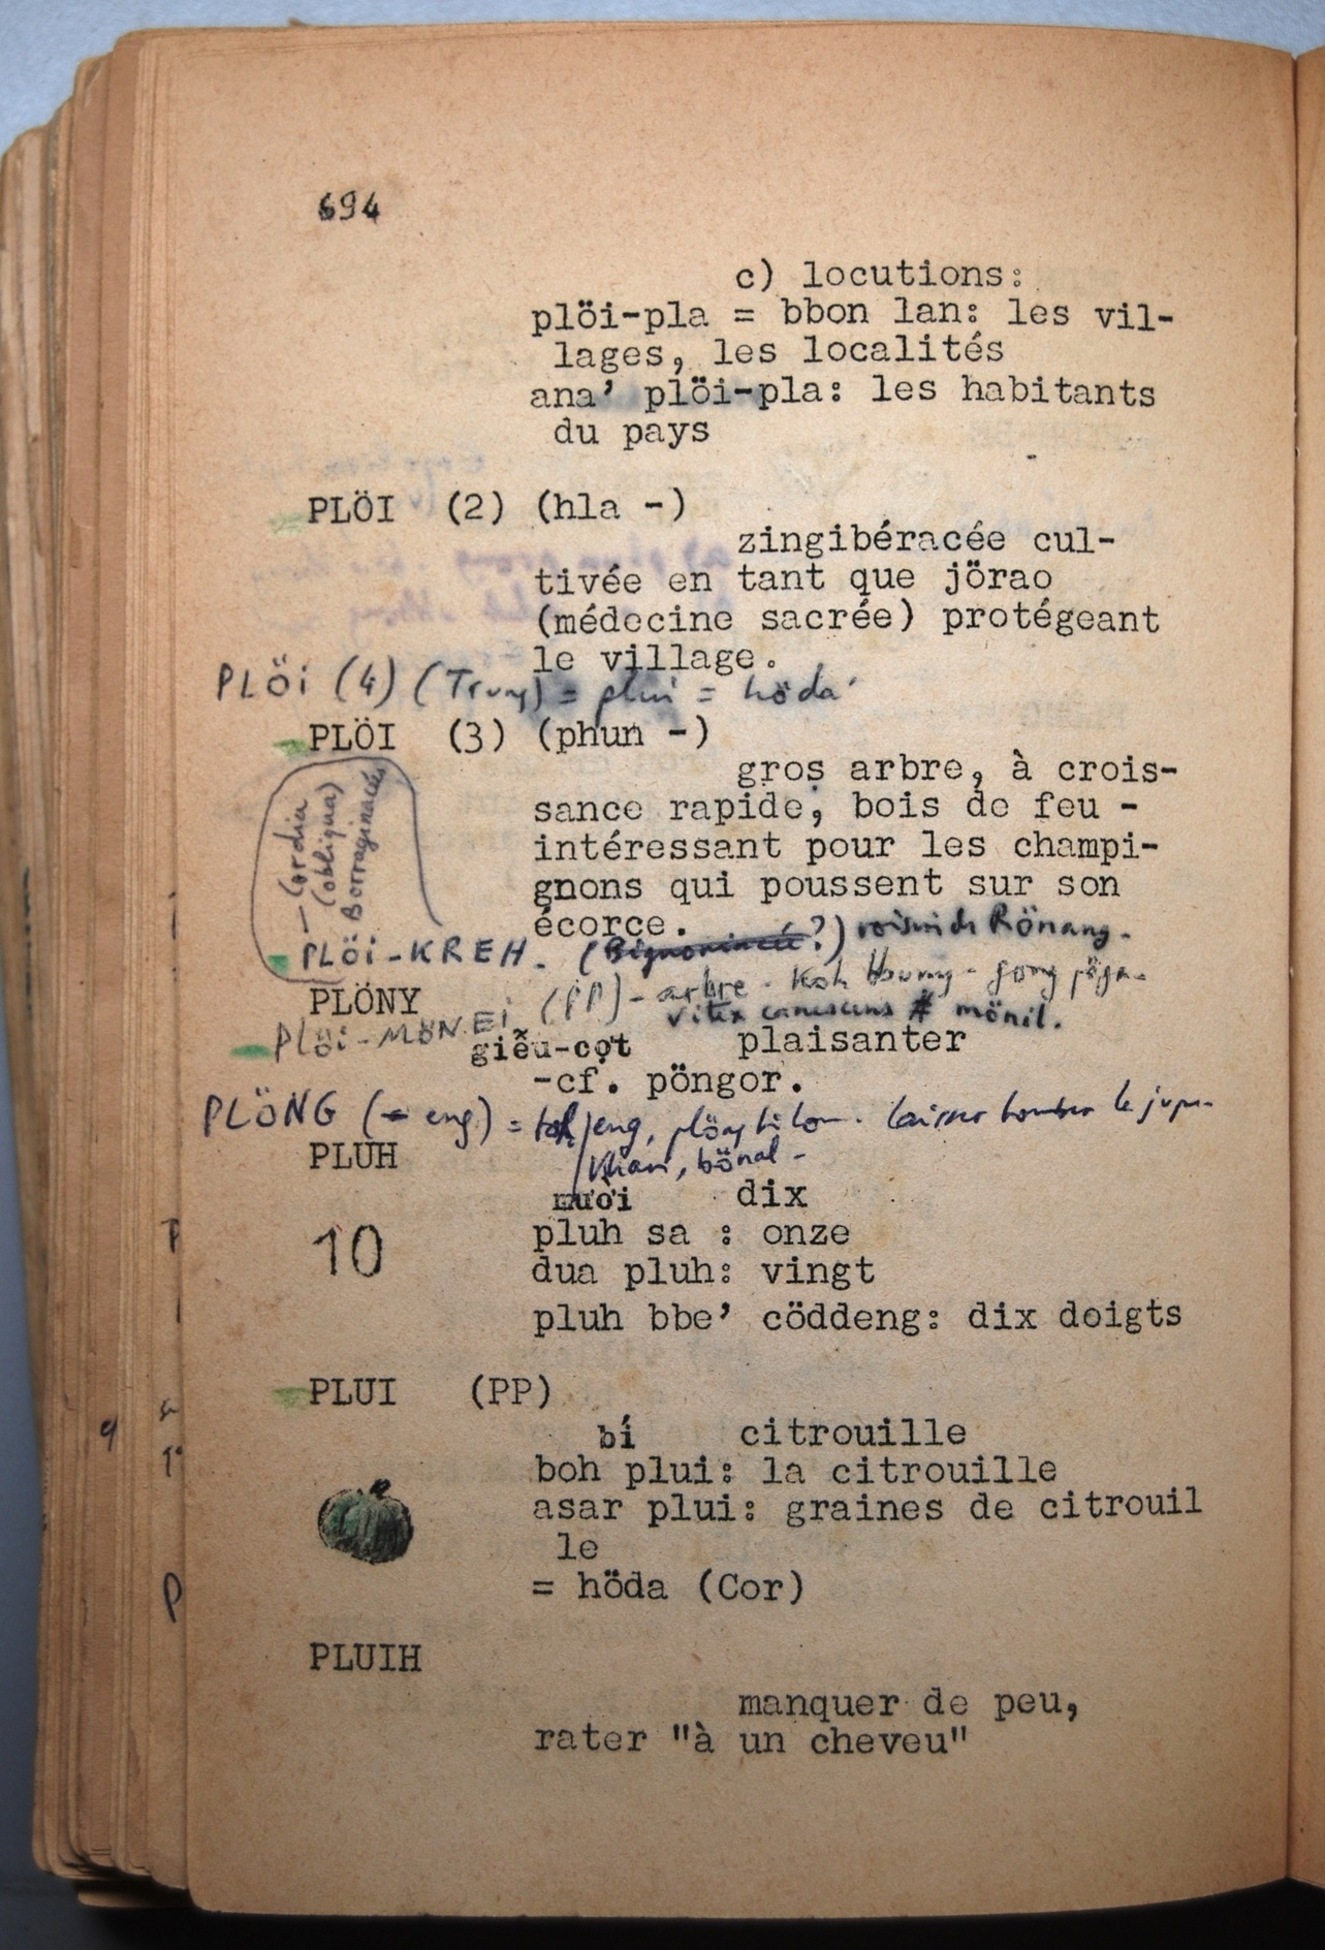 694
c) locutions:
plöi-pla = bbon lan: les vil-
lages, les localités
ana’ plöi-pla: les habitants
du pays
PLÖI (2) (hla -)
zingibéracée cul-
tivée en tant que jörao
(médecine sacrée) protégeant
le village.
PLÖi (4) (Trung) = plui = höda'
PLÖI (3) (phun -)
gros arbre, à crois-
sance rapide, bois de feu -
intéressant pour les champi-
gnons qui poussent sur son
écorce.
- Cordia
(obliqua)
Borraginacées
PLÖi-KREH. (Bignoniacée?) voisin de Rönang.
PLÖNY
PLöi-MÖNEi (PP) - arbre - Koh
Vitex canescens # mönil.
giễu-cợt plaisanter
-cf. pöngor.
PLÖNG (- eng) = toh jeng, laisser tomber le jupe.
khan, bönal -
PLUH
mười dix
pluh sa : onze
10
dua pluh: vingt
pluh bbe’ cöddeng: dix doigts
PLUI (PP)
bí citrouille
boh plui: la citrouille
asar plui: graines de citrouil
le
= höda (Cor)
PLUIH
manquer de peu,
rater "à un cheveu"